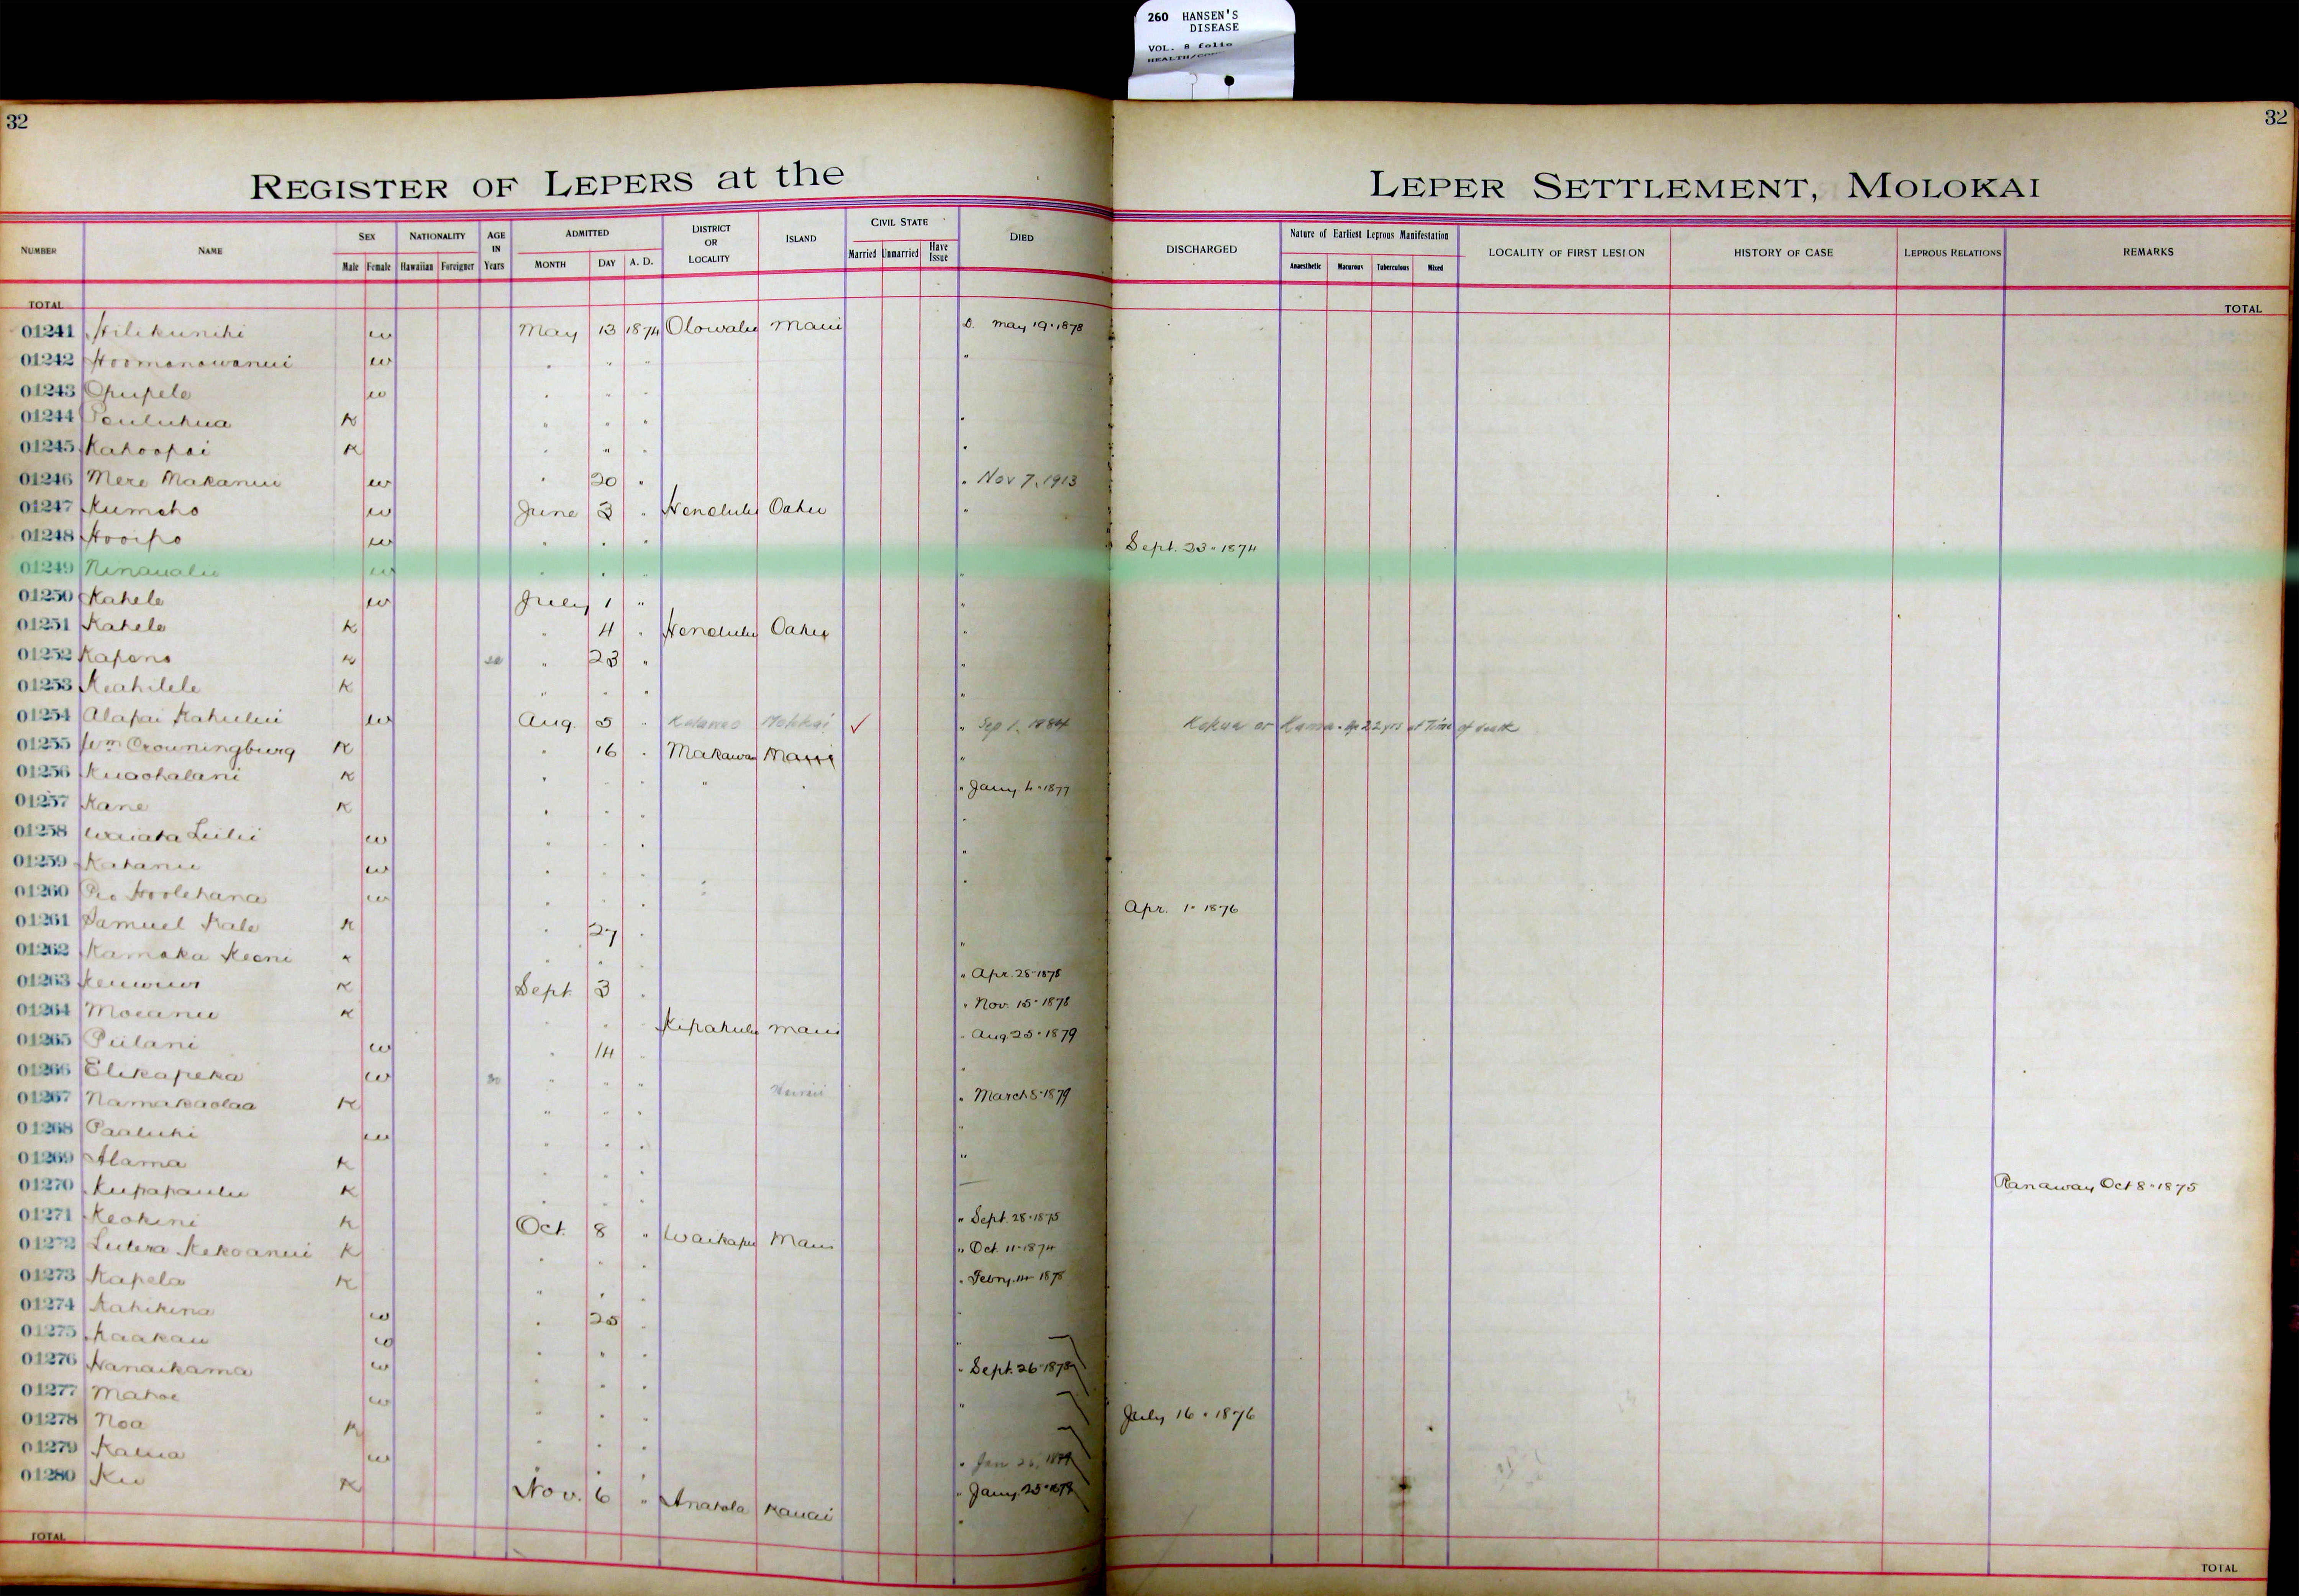 260 HANSEN'S
DISEASE
VOL. 8 folio
32
32
REGISTER OF LEPERS at the
LEPER SETTLEMENT, MOLOKAI
NUMBER NAME SEX Male Female NATIONALITY Hawaiian Foreigner AGE IN Years ADMITTED MONTH DAY A. D. DISTRICT OR LOCALITY ISLAND CIVIL STATE Married Unmarried Have Issue DIED DISCHARGED Nature of Earliest Leprous Manifestation Anaesthetic Macurous Tuberculous Mixed LOCALITY OF FIRST LESION HISTORY OF CASE LEPROUS RELATIONS REMARKS
TOTAL TOTAL
01241 Hilikunihi w May 13 1874 Olowalu Maui D. May 19. 1878
01242 Hoomanawanui w " " " "
01243 Opupele w " " "
01244 Pauluhua K " " " "
01245 Kahoopai K " " " "
01246 Mere Makanui w " 20 " " Nov 7, 1913
01247 Kumeho w June 3 " Honolulu Oahu "
01248 Hooipo w " " " Sept. 23. 1874
01249 Ninaualii w " " " "
01250 Kahele w July 1 " "
01251 Kahele K " 4 " Honolulu Oahu "
01252 Kapena K " 23 " "
01253 Keahilele K " " " "
01254 Alapai Kahului w Aug. 5 " Kalawao Molokai ✓ " Sep 1, 1884 Kokua or Kamaa. age 22 yrs at Time of death
01255 Wm Crouningburg K " 16 " Makawao Maui "
01256 Kuaohalani K " " " " " " Jany. 4. 1877
01257 Kane K " " " "
01258 Waiaka Luilii w " " " "
01259 Kahanu w " " " "
01260 Pio Hoolehana w " " " Apr. 1. 1876
01261 Samuel Kale K " 27 " "
01262 Kamaka Keoni K " " " " Apr. 28. 1878
01263 Keuwus K Sept. 3 " " Nov. 15. 1878
01264 Moeanu K " " " Kipahulu Maui " Aug. 25. 1879
01265 Piilani w " 14 " "
01266 Elikapeka w 30 " " " Hawaii " March 8. 1879
01267 Namakaolaa K " " " "
01268 Paaluhi w " " " "
01269 Alama K " " "
01270 Kupapaulu K " " " Ranaway Oct 8. 1875
01271 Keokini K Oct. 8 " Waikapu Maui " Sept. 28. 1875
01272 Lutera Kekoanui K " " " " Oct. 11. 1874
01273 Kapela K " " " " Febry. 14. 1878
01274 Kahikina w " 25 " "
01275 Kaakau w " " " "
01276 Nanaikama w " " " " Sept. 26. 1878
01277 Mahoe w " " " "
01278 Noa K " " " July 16. 1876
01279 Kalua w " " " " Jan 26, 1879
01280 Ku K Nov. 6 " Anahola Kauai " Jany. 25. 1879
TOTAL TOTAL